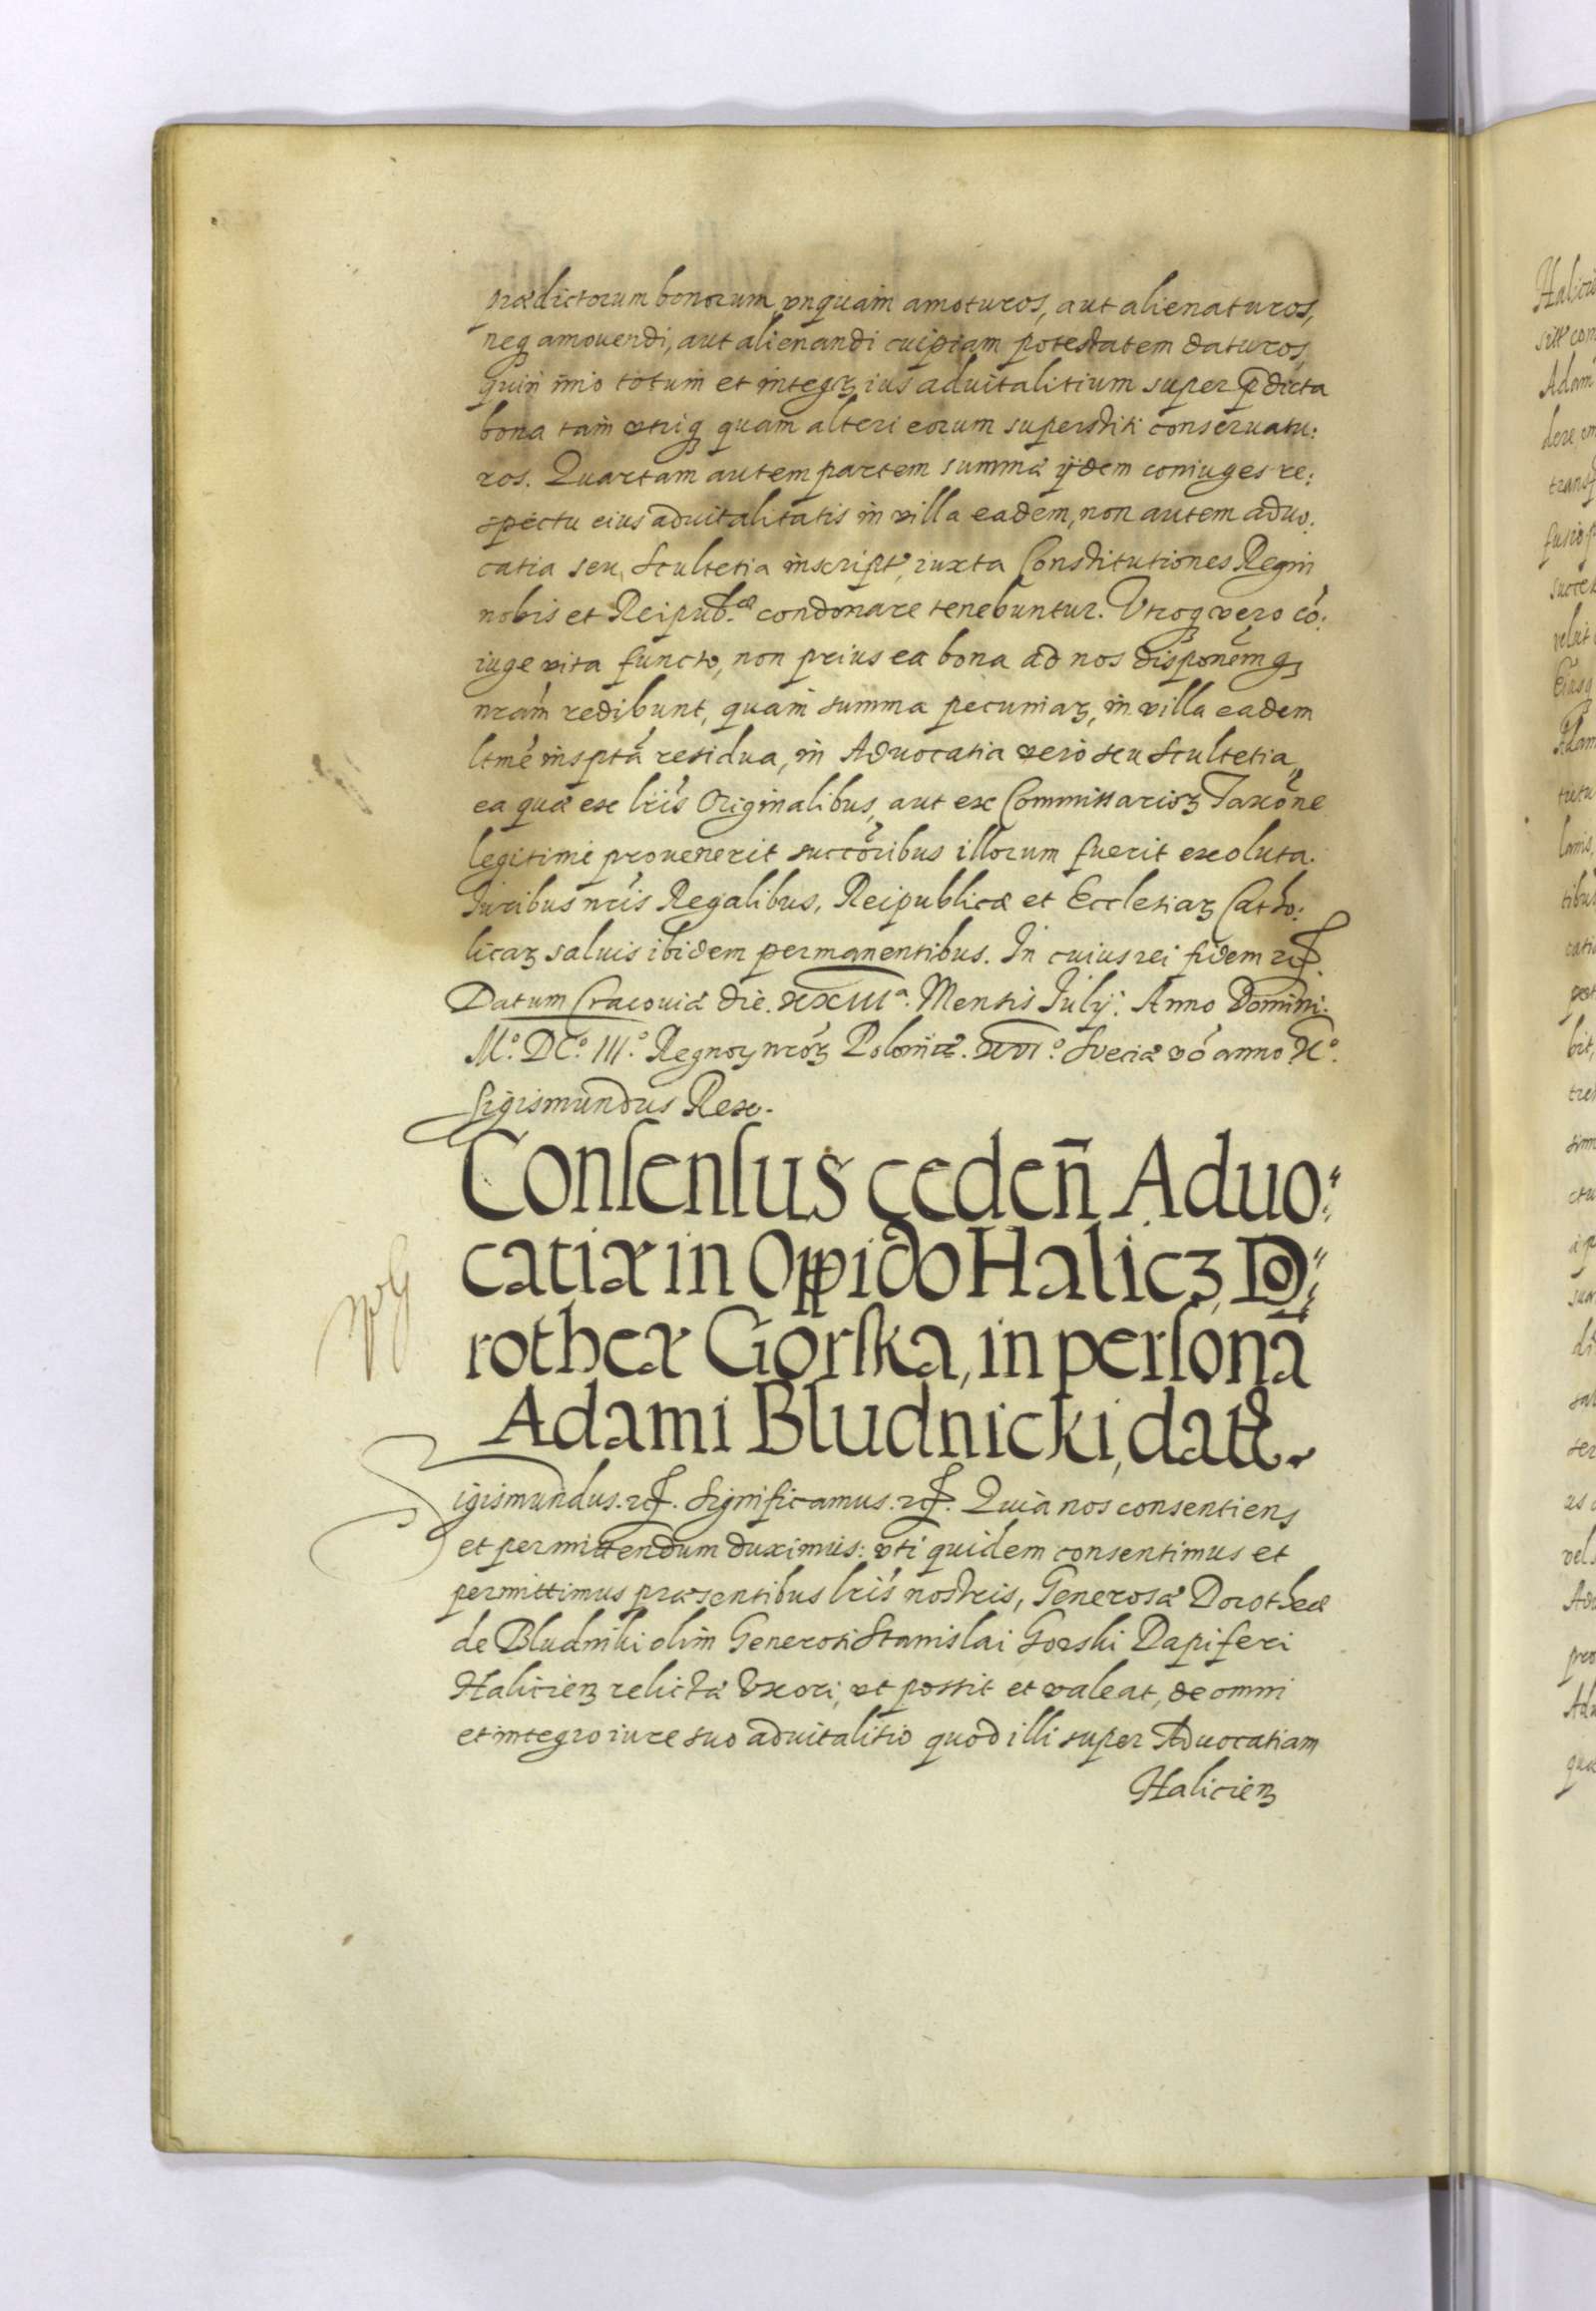 prædictorum bonorum vnquam amoturos, aut alienaturos,
neq amouendi, aut alienandi cuipiam potestatem daturos,
quin imo totum et integrꝫ ius aduitalitium super p̄dicta
bona tam vtriqꝫ quam alteri eorum superstiti conseruatu:
ros. Quartam autem partem summæ ijdem coniuges re:
spectu eius aduitalitatis in villa eadem, non autem aduo:
catia seu Scultetia inscript, iuxta Constitutiones Regni
nobis et Reipub.cæ condonare tenebuntur. Vtroqꝫ vero cō:
iuge vita functo, non prius ea bona ad nos disponēmqꝫ
nrām redibunt, quam summa pecuniaꝝ, in villa eadem
ltmē insptā residua, in Aduocatia vero seu Scultetia,
ea quæ ex lrīs Originalibus, aut ex Commissarioꝝ Taxōne
legitime prouenerit succōribus illorum fuerit exoluta.
Iuribus nrīs Regalibus, Reipublicæ et Ecclesiaꝝ Catho:
licaꝝ saluis ibidem permanentibus. In cuius rei fidem ꝛc̄.
Datum Cracouiæ die. XXIIIa. Mensis Iulij. Anno Domini.
Mo. DCo. IIIo. Regnoꝝ nrōꝝ Poloniæ. XVIo. Sueciæ vō anno Xo.
Sigismundus Rex.
Consensus ceden̄ Aduo:
catiæ in Oppido Halicz, Do:
rotheæ Gorska, in personā
Adami Bludnicki, dat
Sigismundus. ꝛc̄. Significamus. ꝛc̄. Quia nos consentiens
et permittendum duximus: vti quidem consentimus et
permittimus præsentibus lrīs nostris, Generosæ Dorotheæ
de Bludniki olim Generosi Stanislai Gorski Dapiferi
Halicien relictæ Vxori, vt possit et valeat, de omni
et integro iure suo aduitalitio quod illi super Aduocatiam
Halicien